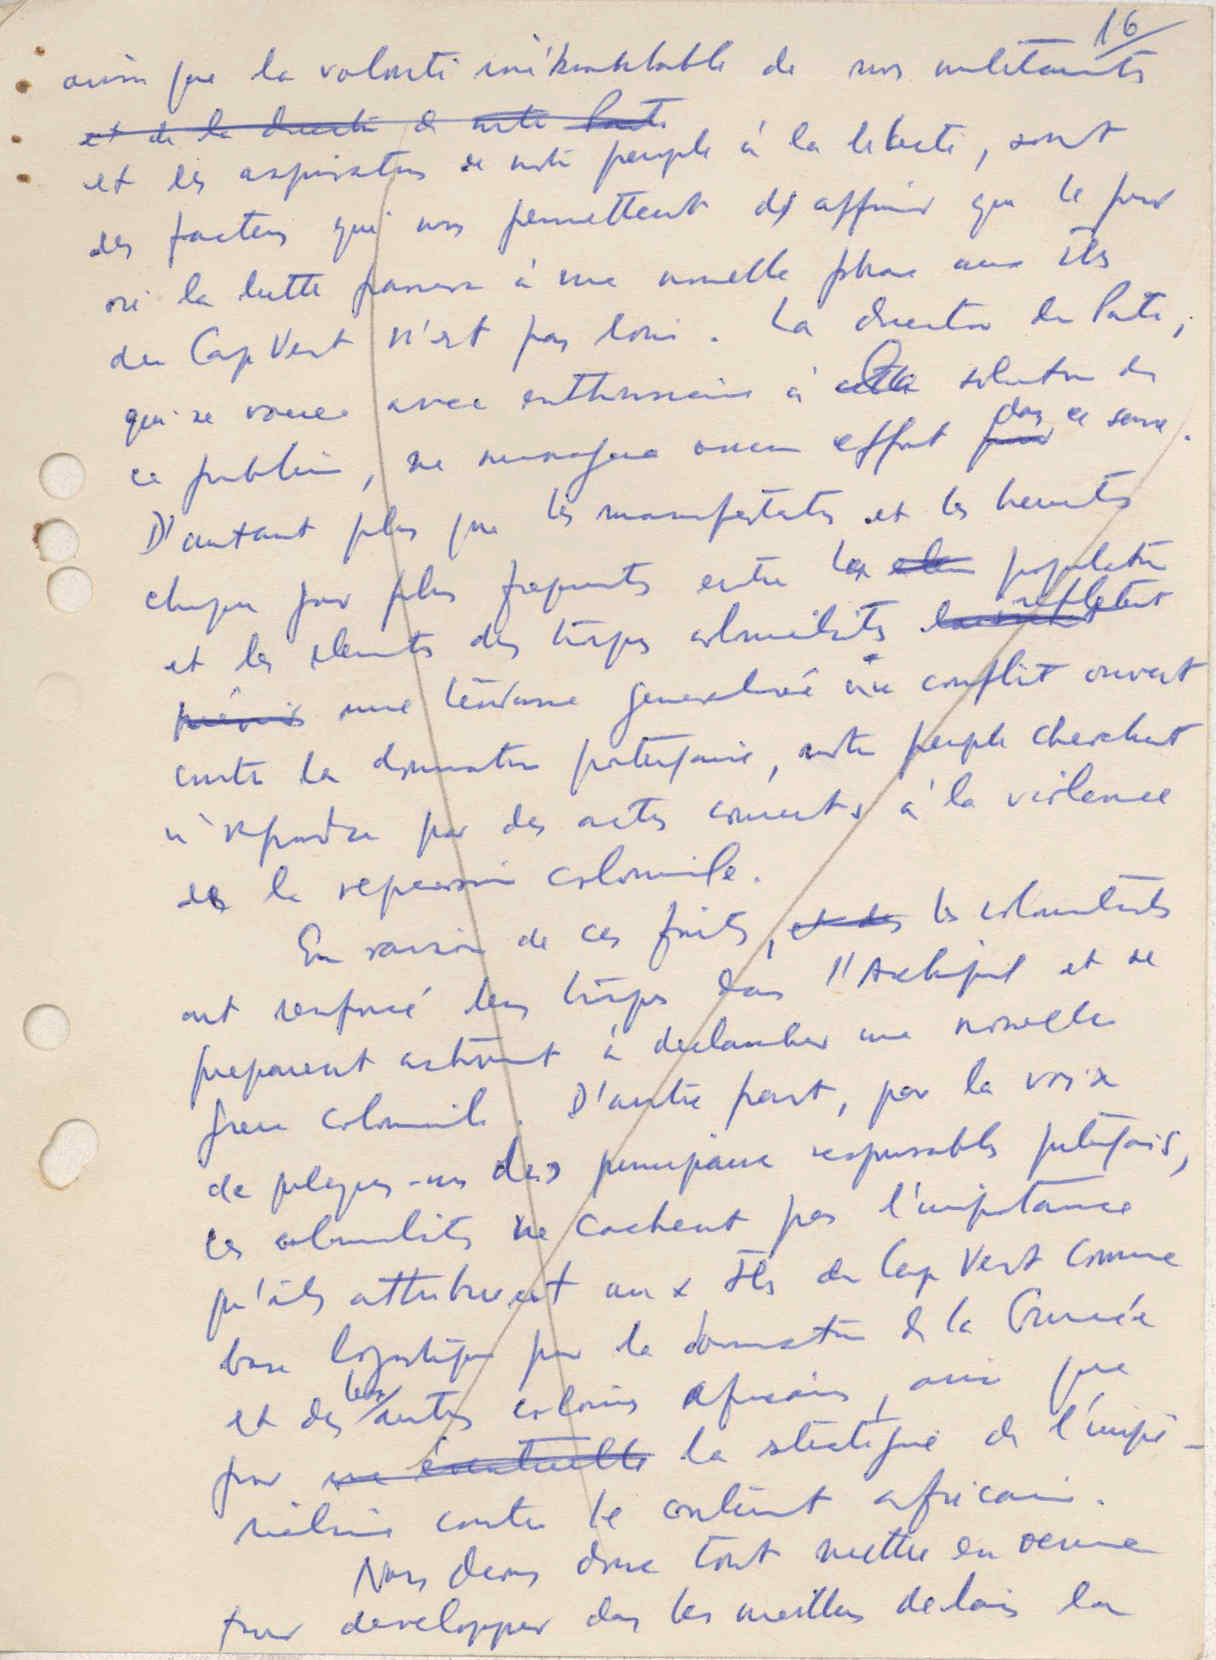 16
ainsi que la volonté inébranlable de nos militants
et de la direction de notre Parti
et les aspirations de notre peuple à la liberté, sont
des facteurs qui nous permettent d'affirmer que le jour
où la lutte passera à une nouvelle phase aux Iles
du Cap Vert n'est pas loin. La direction du Parti,
qui se voue avec enthousiasme à la solution de
ce problème, ne ménagera aucun effort pour dans ce sens.
D'autant plus que les manifestations et les heurts
chaque jour plus fréquents entre la population
et les éléments des troupes colonialistes reflètent
une tendance généralisée au conflit ouvert
contre la domination portugaise, notre peuple cherchant
à répondre par des actes concrets à la violence
de la répression coloniale.
En raison de ces faits, et des les colonialistes
ont renforcé leurs troupes dans l'Archipel et se
préparent activement à déclancher une nouvelle
guerre coloniale. D'autre part, par la voix
de quelques-uns des principaux responsables portugais,
les colonialistes ne cachent pas l'importance
qu'ils attribuent aux Iles du Cap Vert comme
base logistique pour la domination de la Guinée
et des leurs autres colonies africaines, ainsi que
pour une éventuelle la stratégie de l'impé-
rialisme contre le continent africain.
Nous devons donc tout mettre en oeuvre
pour développer dans les meilleurs délais la